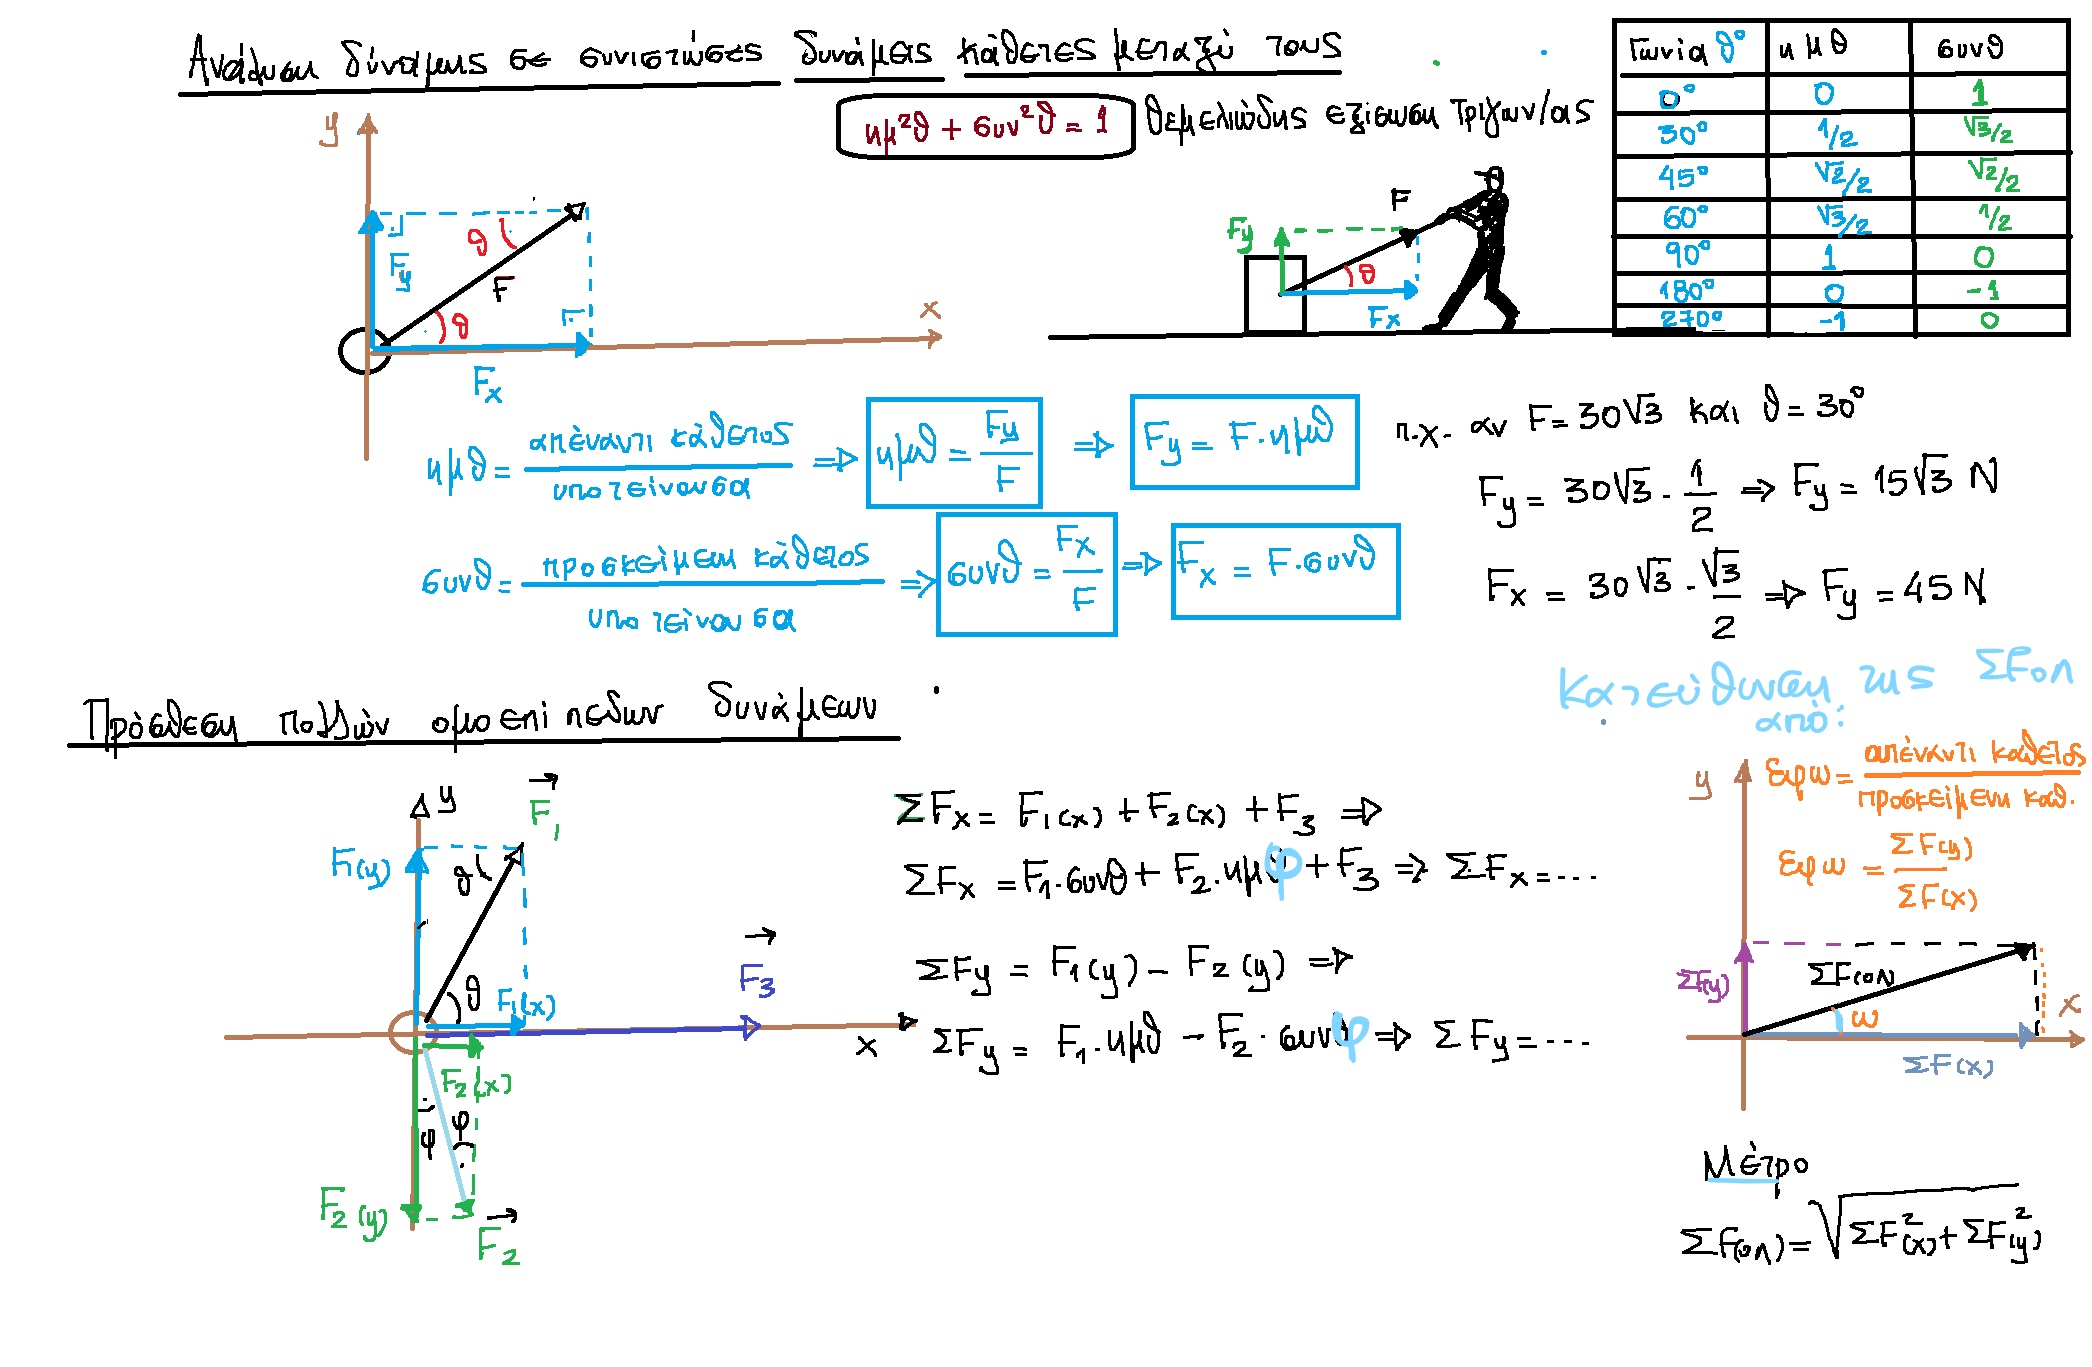 Ανάλυση δύναμης σε συνιστώσες δυνάμεις κάθετες μεταξύ τους
ημ²θ + συν²θ = 1 θεμελιώδης εξίσωση Τριγων/ας
Γωνία θ° ημθ συνθ
0° 0 1
30° 1/2 √3/2
45° √2/2 √2/2
60° √3/2 1/2
90° 1 0
180° 0 -1
270° -1 0
y
θ
Fy
F
θ
x
Fx
F
Fy
θ
Fx
ημθ = απέναντι κάθετος / υποτείνουσα ⇒ ημθ = Fy/F ⇒ Fy = F·ημθ
συνθ = προσκείμενη κάθετος / υποτείνουσα ⇒ συνθ = Fx/F ⇒ Fx = F·συνθ
π.χ. αν F = 30√3 και θ = 30°
Fy = 30√3 · 1/2 ⇒ Fy = 15√3 N
Fx = 30√3 · √3/2 ⇒ Fy = 45 N
Πρόσθεση πολλών ομοεπίπεδων δυνάμεων
y
F₁
F₁(y)
θ
θ
F₁(x)
F₃
x
F₂(x)
φ
φ
F₂(y)
F₂
ΣFx = F₁(x) + F₂(x) + F₃ ⇒
ΣFx = F₁·συνθ + F₂·ημφ + F₃ ⇒ ΣFx = ...
ΣFy = F₁(y) - F₂(y) ⇒
ΣFy = F₁·ημθ - F₂·συνφ ⇒ ΣFy = ...
Κατεύθυνση της ΣFολ
από:
y
εφω = απέναντι κάθετος / προσκείμενη καθ.
εφω = ΣF(y) / ΣF(x)
ΣF(y)
ΣF(ολ)
ω
x
ΣF(x)
Μέτρο
ΣF(ολ) = √ΣF²(x) + ΣF²(y)